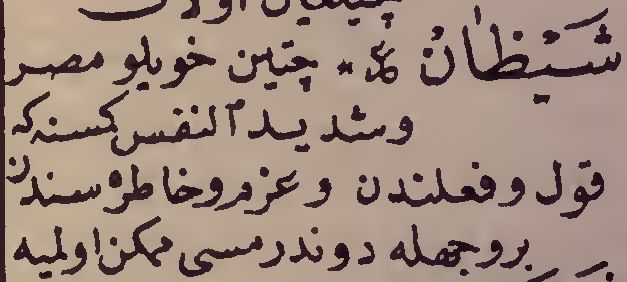 شَيْظَانٌ چتین خویلو مصر
وشدید النفس کسنه که
قول و فعلندن و عزم و خاطره سندن
بر وجهله دوندرمسی ممکن اولمیه